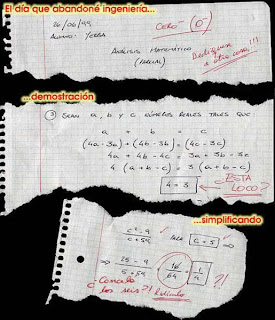 El día que abandoné ingeniería...
26/06/99
CERO - (0)
ALUMNO: YERBA
ANÁLISIS MATEMÁTICO
(PARCIAL)
Dedíquese
a otra cosa!
...demostración
③ SEAN a, b y c NÚMEROS REALES TALES QUE:
a + b = c
(4a - 3a) + (4b - 3b) = (4c - 3c)
4a + 4b - 4c = 3a + 3b - 3c
4 (a + b - c) = 3 (a + b - c)
4 = 3
¿ESTÁ
LOCO?
...simplificando
c² - 9
c + 59
PARA c = 5 ⇒
⇒ 25 - 9
5 + 59
= 16
64
= 1
4
?!
¿Cancela
los seis?!
Ridículo